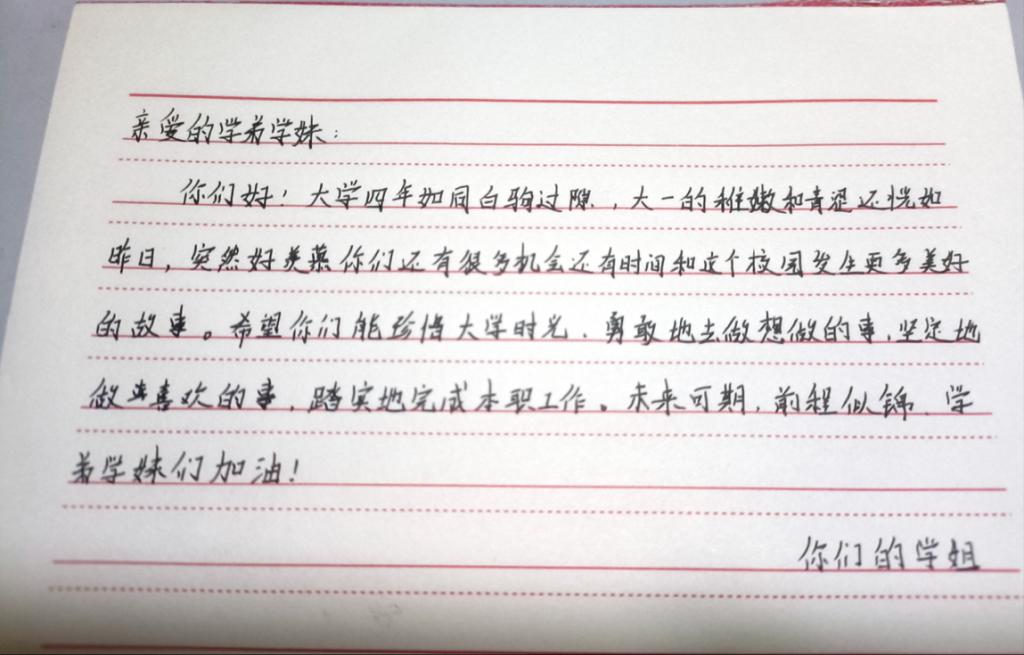 亲爱的学弟学妹：
你们好！大学四年如同白驹过隙，大一的稚嫩和青涩还恍如
昨日，突然好羡慕你们还有很多机会还有时间和这个校园发生更多美好
的故事。希望你们能珍惜大学时光，勇敢地去做想做的事，坚定地
做喜欢的事，踏实地完成本职工作。未来可期，前程似锦，学
弟学妹们加油！
你们的学姐